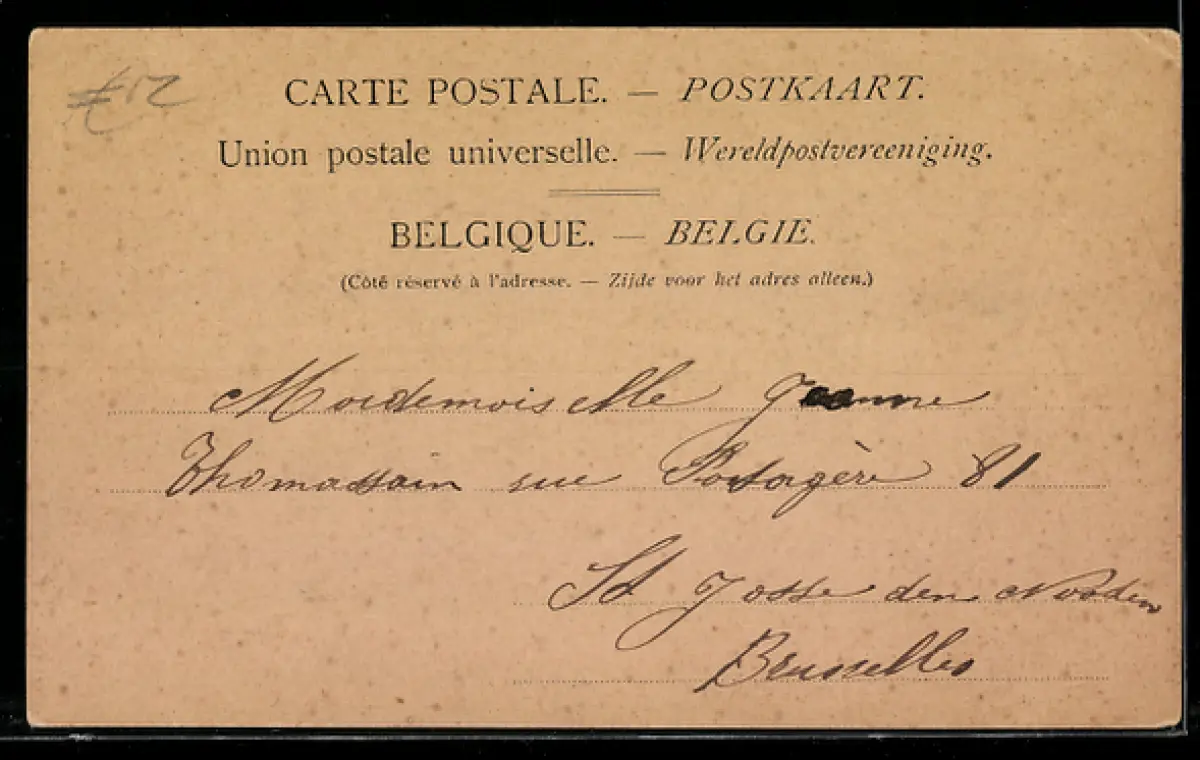 €12
CARTE POSTALE. — POSTKAART.
Union postale universelle. — Wereldpostvereeniging.
BELGIQUE. — BELGIE.
(Côté réservé à l'adresse. — Zijde voor het adres alleen.)
Mademoiselle Jeanne
Thomassain rue Potagère 81
St Josse den Nooden
Bruxelles